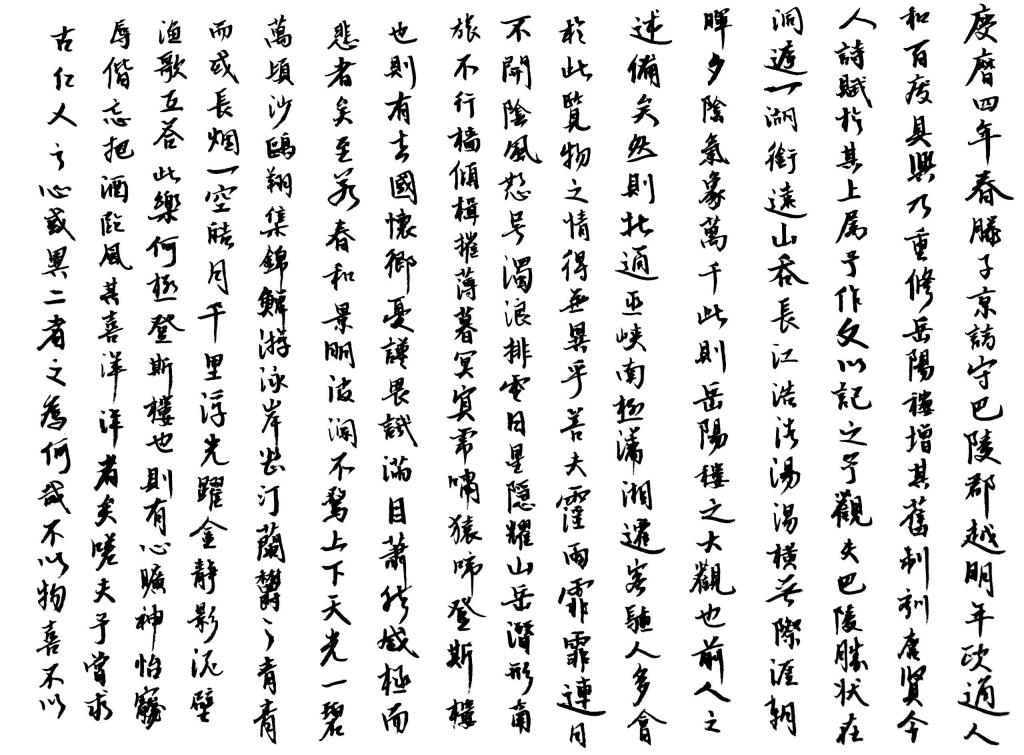 慶曆四年春滕子京謫守巴陵郡越明年政通人
和百廢具興乃重修岳陽樓增其舊制刻唐賢今
人詩賦於其上属予作文以記之予觀夫巴陵勝狀在
洞遞一湖銜遠山吞長江浩浩湯湯橫無際涯朝
暉夕陰氣象萬千此則岳陽樓之大觀也前人之
述備矣然則北通巫峽南極瀟湘遷客騷人多會
於此覽物之情得無異乎若夫霪雨霏霏連月
不開陰風怒号濁浪排空日星隱耀山岳潛形商
旅不行檣傾楫摧薄暮冥冥虎嘯猿啼登斯樓
也則有去國懷鄉憂讒畏譏滿目蕭然感極而
悲者矣至若春和景明波瀾不驚上下天光一碧
萬頃沙鷗翔集錦鱗游泳岸芷汀蘭鬱々青青
而或長烟一空皓月千里浮光躍金靜影沉璧
漁歌互荅此樂何極登斯樓也則有心曠神怡寵
辱偕忘把酒臨風其喜洋洋者矣嗟夫予嘗求
古仁人之心或異二者之為何哉不以物喜不以